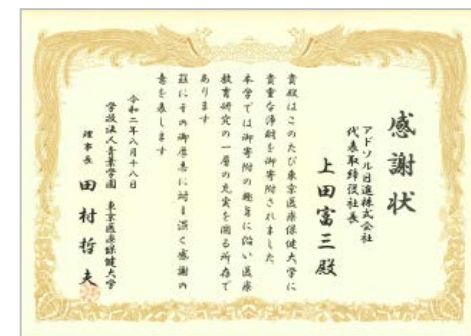 感謝状
アドソル日進株式会社
代表取締役社長
上田富三殿
貴殿はこのたび東京医療保健大学に
貴重な浄財を御寄附されました
本学では御寄附の趣旨に沿い医療
教育研究の一層の充実を図る所存で
あります
茲にその御厚志に対し深く感謝の
意を表します
令和二年八月十八日
学校法人青葉学園 東京医療保健大学
理事長 田村哲夫